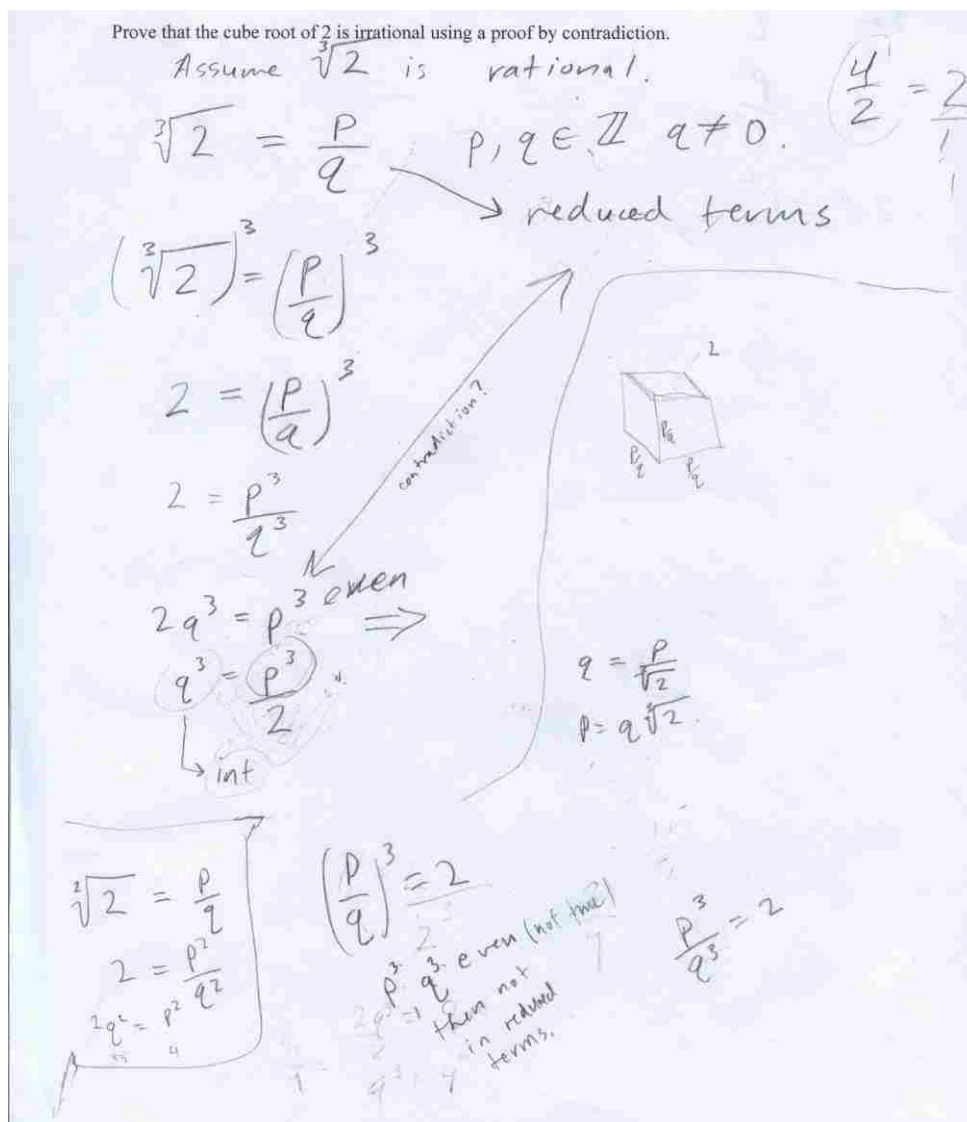 Prove that the cube root of 2 is irrational using a proof by contradiction.
Assume ∛2 is rational.
4/2 = 2/1
∛2 = p/q p, q ∈ ℤ q ≠ 0.
→ reduced terms
(∛2)³ = (p/q)³
2 = (p/q)³
contradiction?
2 = p³/q³
2q³ = p³ even ⇒
q³ = p³/2
↳ int
2
p/q
p/q
p/q
q = p/∛2
p = q∛2.
²√2 = p/q
2 = p²/q²
2q² = p²
(p/q)³ = 2
p³ q³ even (not true)
then not
in reduced
terms.
p³/q³ = 2